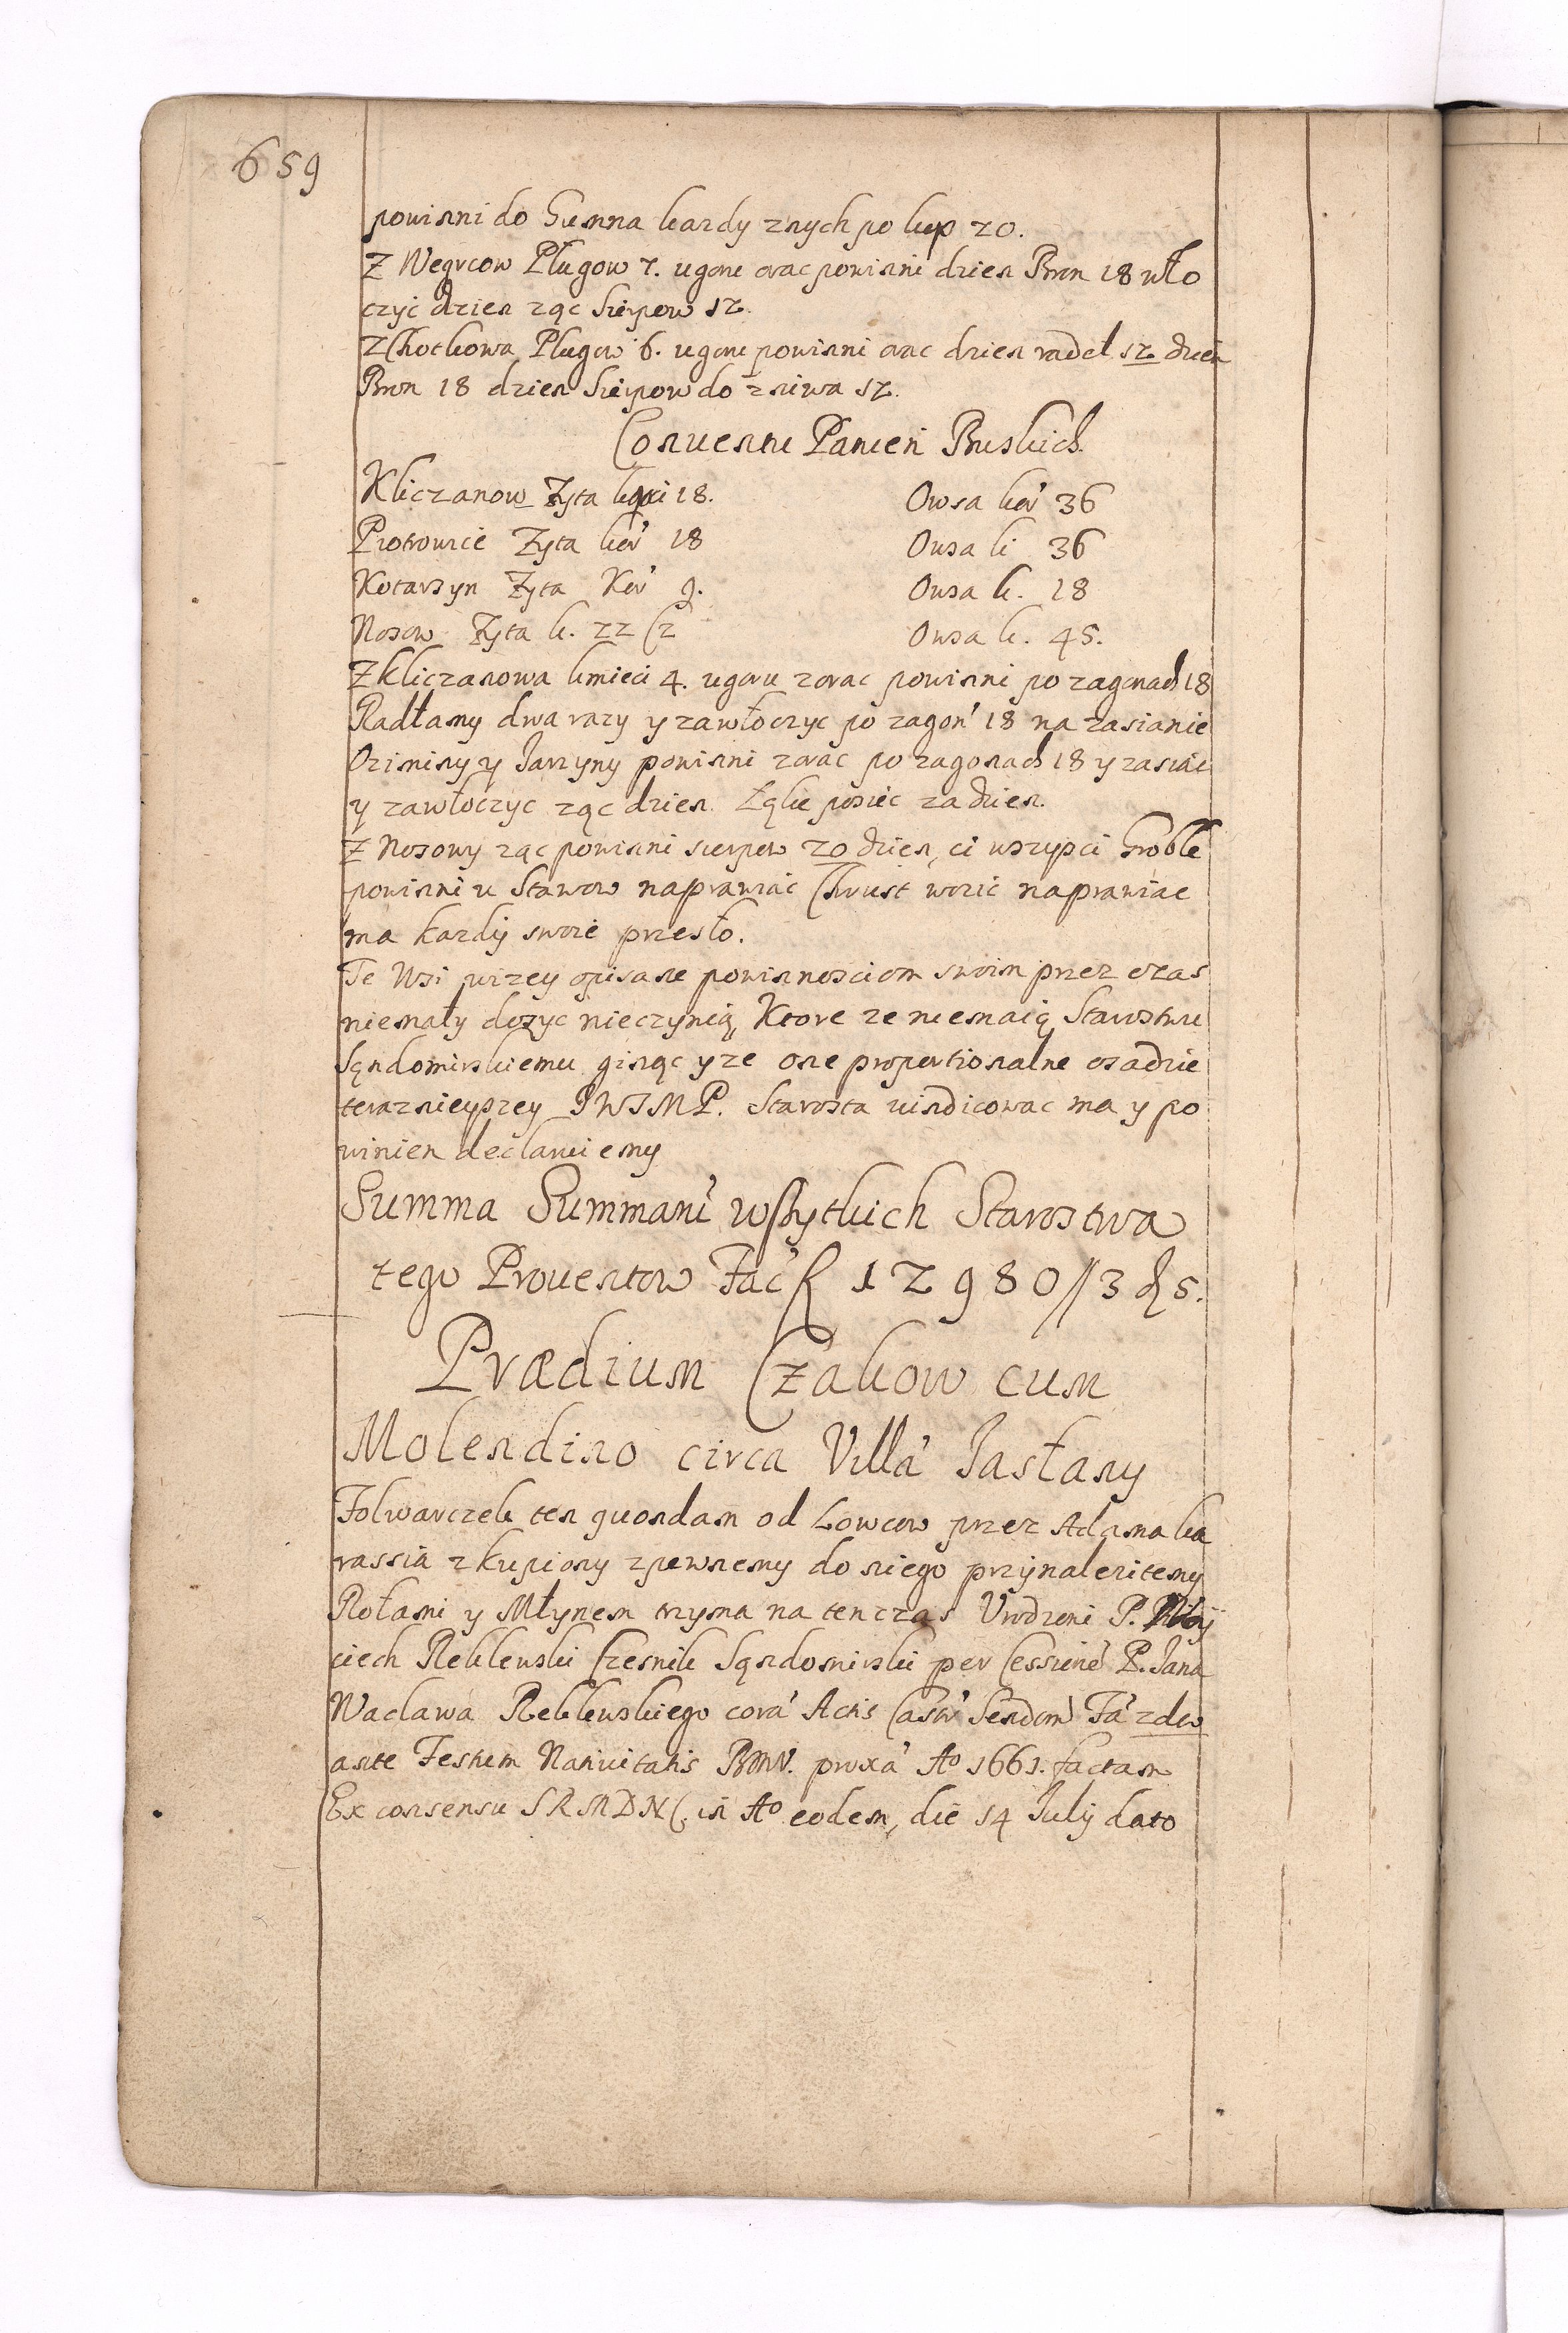 659
powinni do Gumna kazdy znych po kup 20.
Z Węgrcow Pługow 7. ugoru orac powinni dzien Bron 18 wło
czyć dzien ząc Sierpow 12.
Z Chotkowa Plugow 6. ugoru powinni orac dzien radeł 12 dzień
Bron 18 dzien Sierpow do zniwa 12.
Conuentu Panien Buskich
Kliczanow Zyta 18.
Owsa kor' 36
Piotrowice Zyta kor' 18
Owsa k 36
Kotarszyn Zyta Kor' 9.
Owsa k. 18
Nosow Zyta k. 22 (2
Owsa k. 45.
Z Kliczanowa kmieci 4. ugoru zorac powinni po zagonach 18
Radłamy dwa razy y zawłoczyc po zagon' 18 na zasianie
Oziminy y Jarzyny powinni zorac po zagonach 18 y zasiac
y zawłoczyc ząc dzien Łąkę posiec za dzien.
Z Nosowy ząc powinni sierpow 20 dzien, ci wszyscy Groble
powinni u Stawow naprawiac Chrust wozic naprawiac
ma kazdy swoie przesło.
Te Wsi wizey opisane powinnosciom swoim przez czas
niemały dosyc nieczynią, Ktore ze niemaią Starostwu
Sędomirskiemu ginąc y ze one proportionalne osadzie
teraznieyszey JWJMP. Starosta vindicowac ma y po
winien declaruiemy
Summa Summaru' wszytkich Starostwa
tego Prouentow Fac' fl 12980//3 d 5.
Prædium Czakow cum
Molendino circa Villa' Jasłany
Folwarczek ten quondam od Lowcow przez Adama ka
rassia zkupiony zpewnemy do niego przynalezitemy
Rołami y Młynem trzyma na ten czas Urodzoni P. Woy
ciech Reklewski Czesnik Sędomirski per Cessione' P. Jana
Waclawa Reklewskiego cora' Actis Castr' Sendom Fa'
ante Festum Natiuitatis BMV. proxa' Ao 1661. factam
Ex consensu SRMDNC, in Ao eodem, die 14 Julij dato